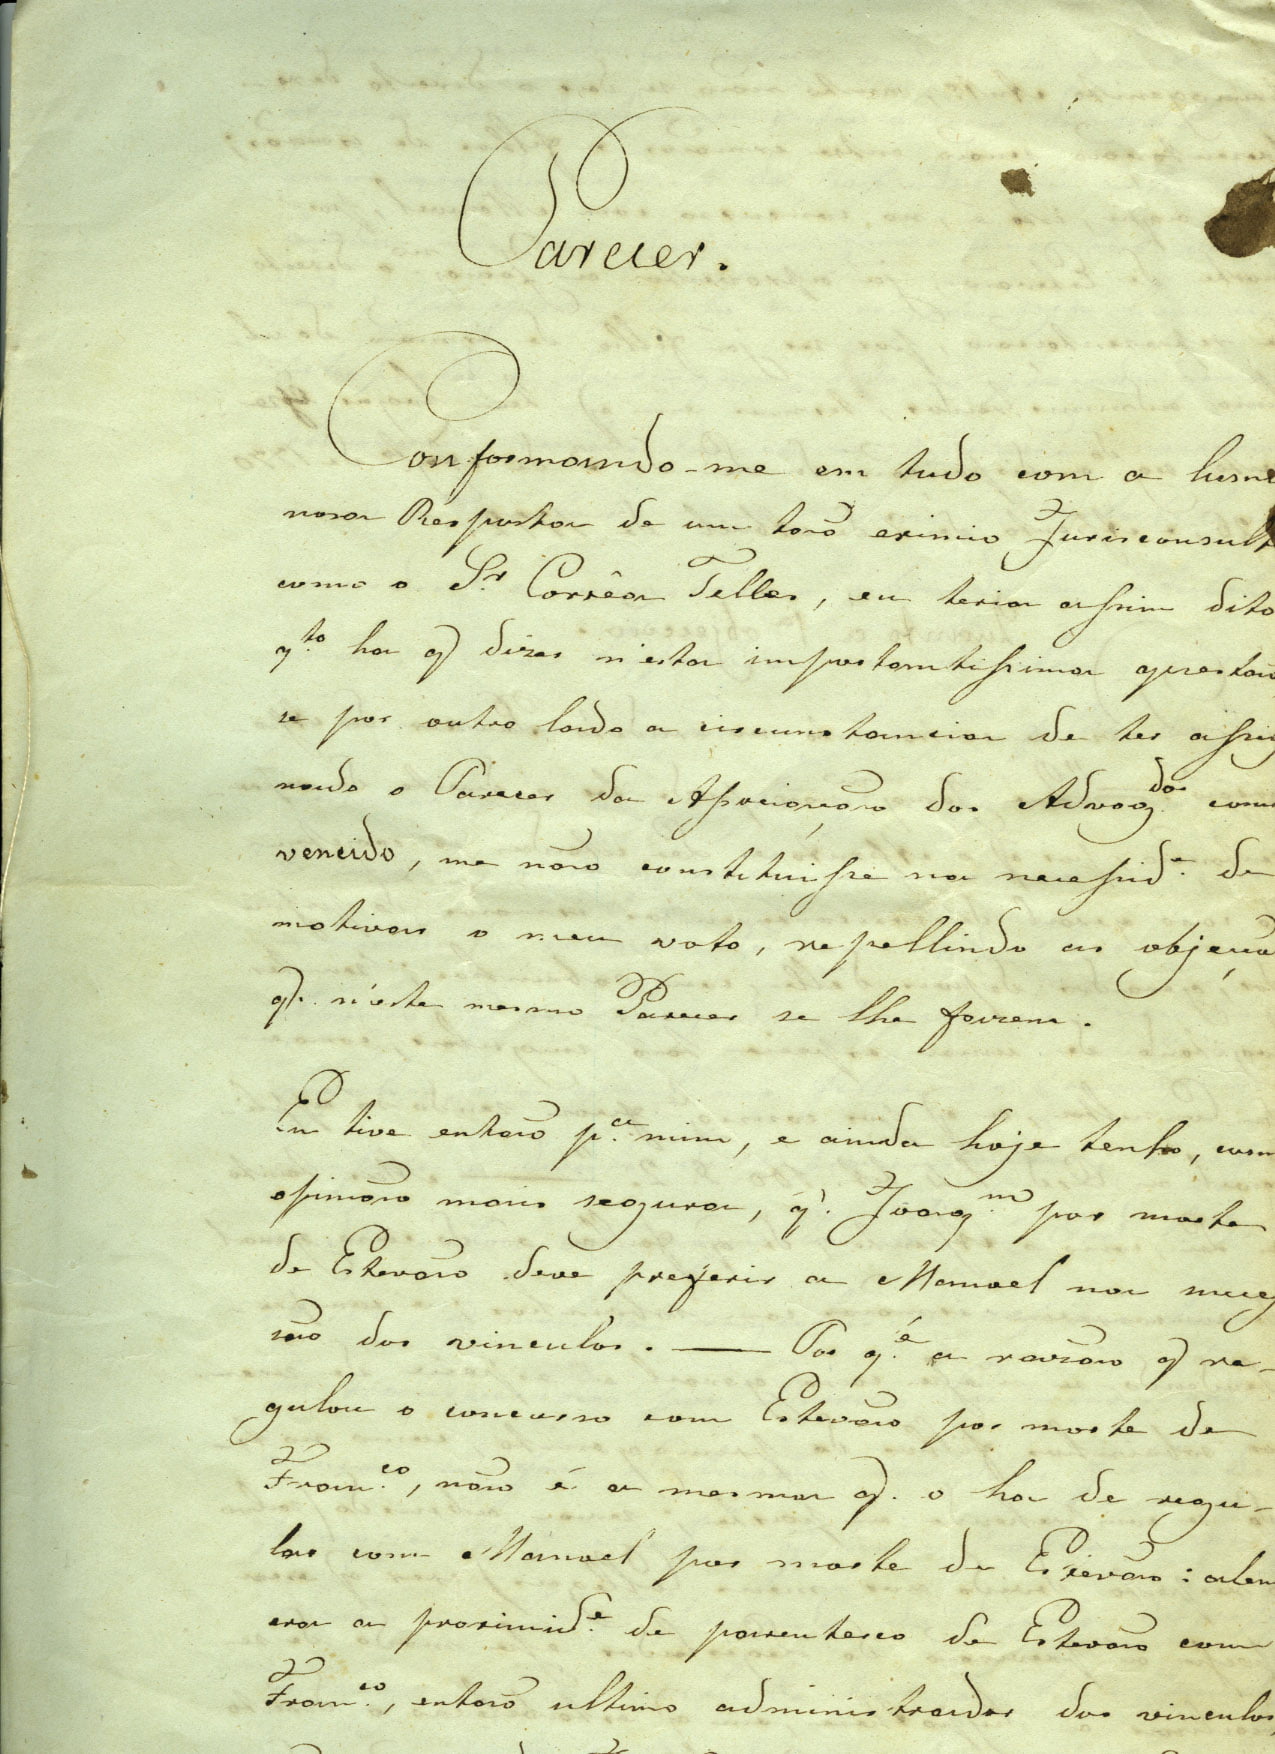 Parecer.
Conformando-me em tudo com a lumi
nosa Resposta de um taõ eximio Jurisconsult
como o Sr. Corrêa Telles, eu teria assim dito
qto. ha q dizer n'esta importantissima questaõ
se por outro lado a circunstancia de ter assig
nado o Parecer da Associaçaõ dos Advogdos. como
vencido, me naõ constituisse na necesside. de
motivar o meu voto, repellindo as objecçõ
q. n'este mesmo Parecer se lhe fazem.
Eu tive entaõ pa. mim, e ainda hoje tenho, com
opiniaõ mais segura, q. Joaqm. por morte
de Estevaõ deve preferir a Manoel na succes
saõ dos vinculos. — Por q. é a razaõ q re-
gulou o concurso com Estevaõ por morte de
Franco., naõ é a mesma q. o ha de regu-
lar com Manoel por morte de Estevaõ: alem
era a proximide. de parentesco de Estevaõ com
Franco., entaõ ultimo administrador dos vinculos,